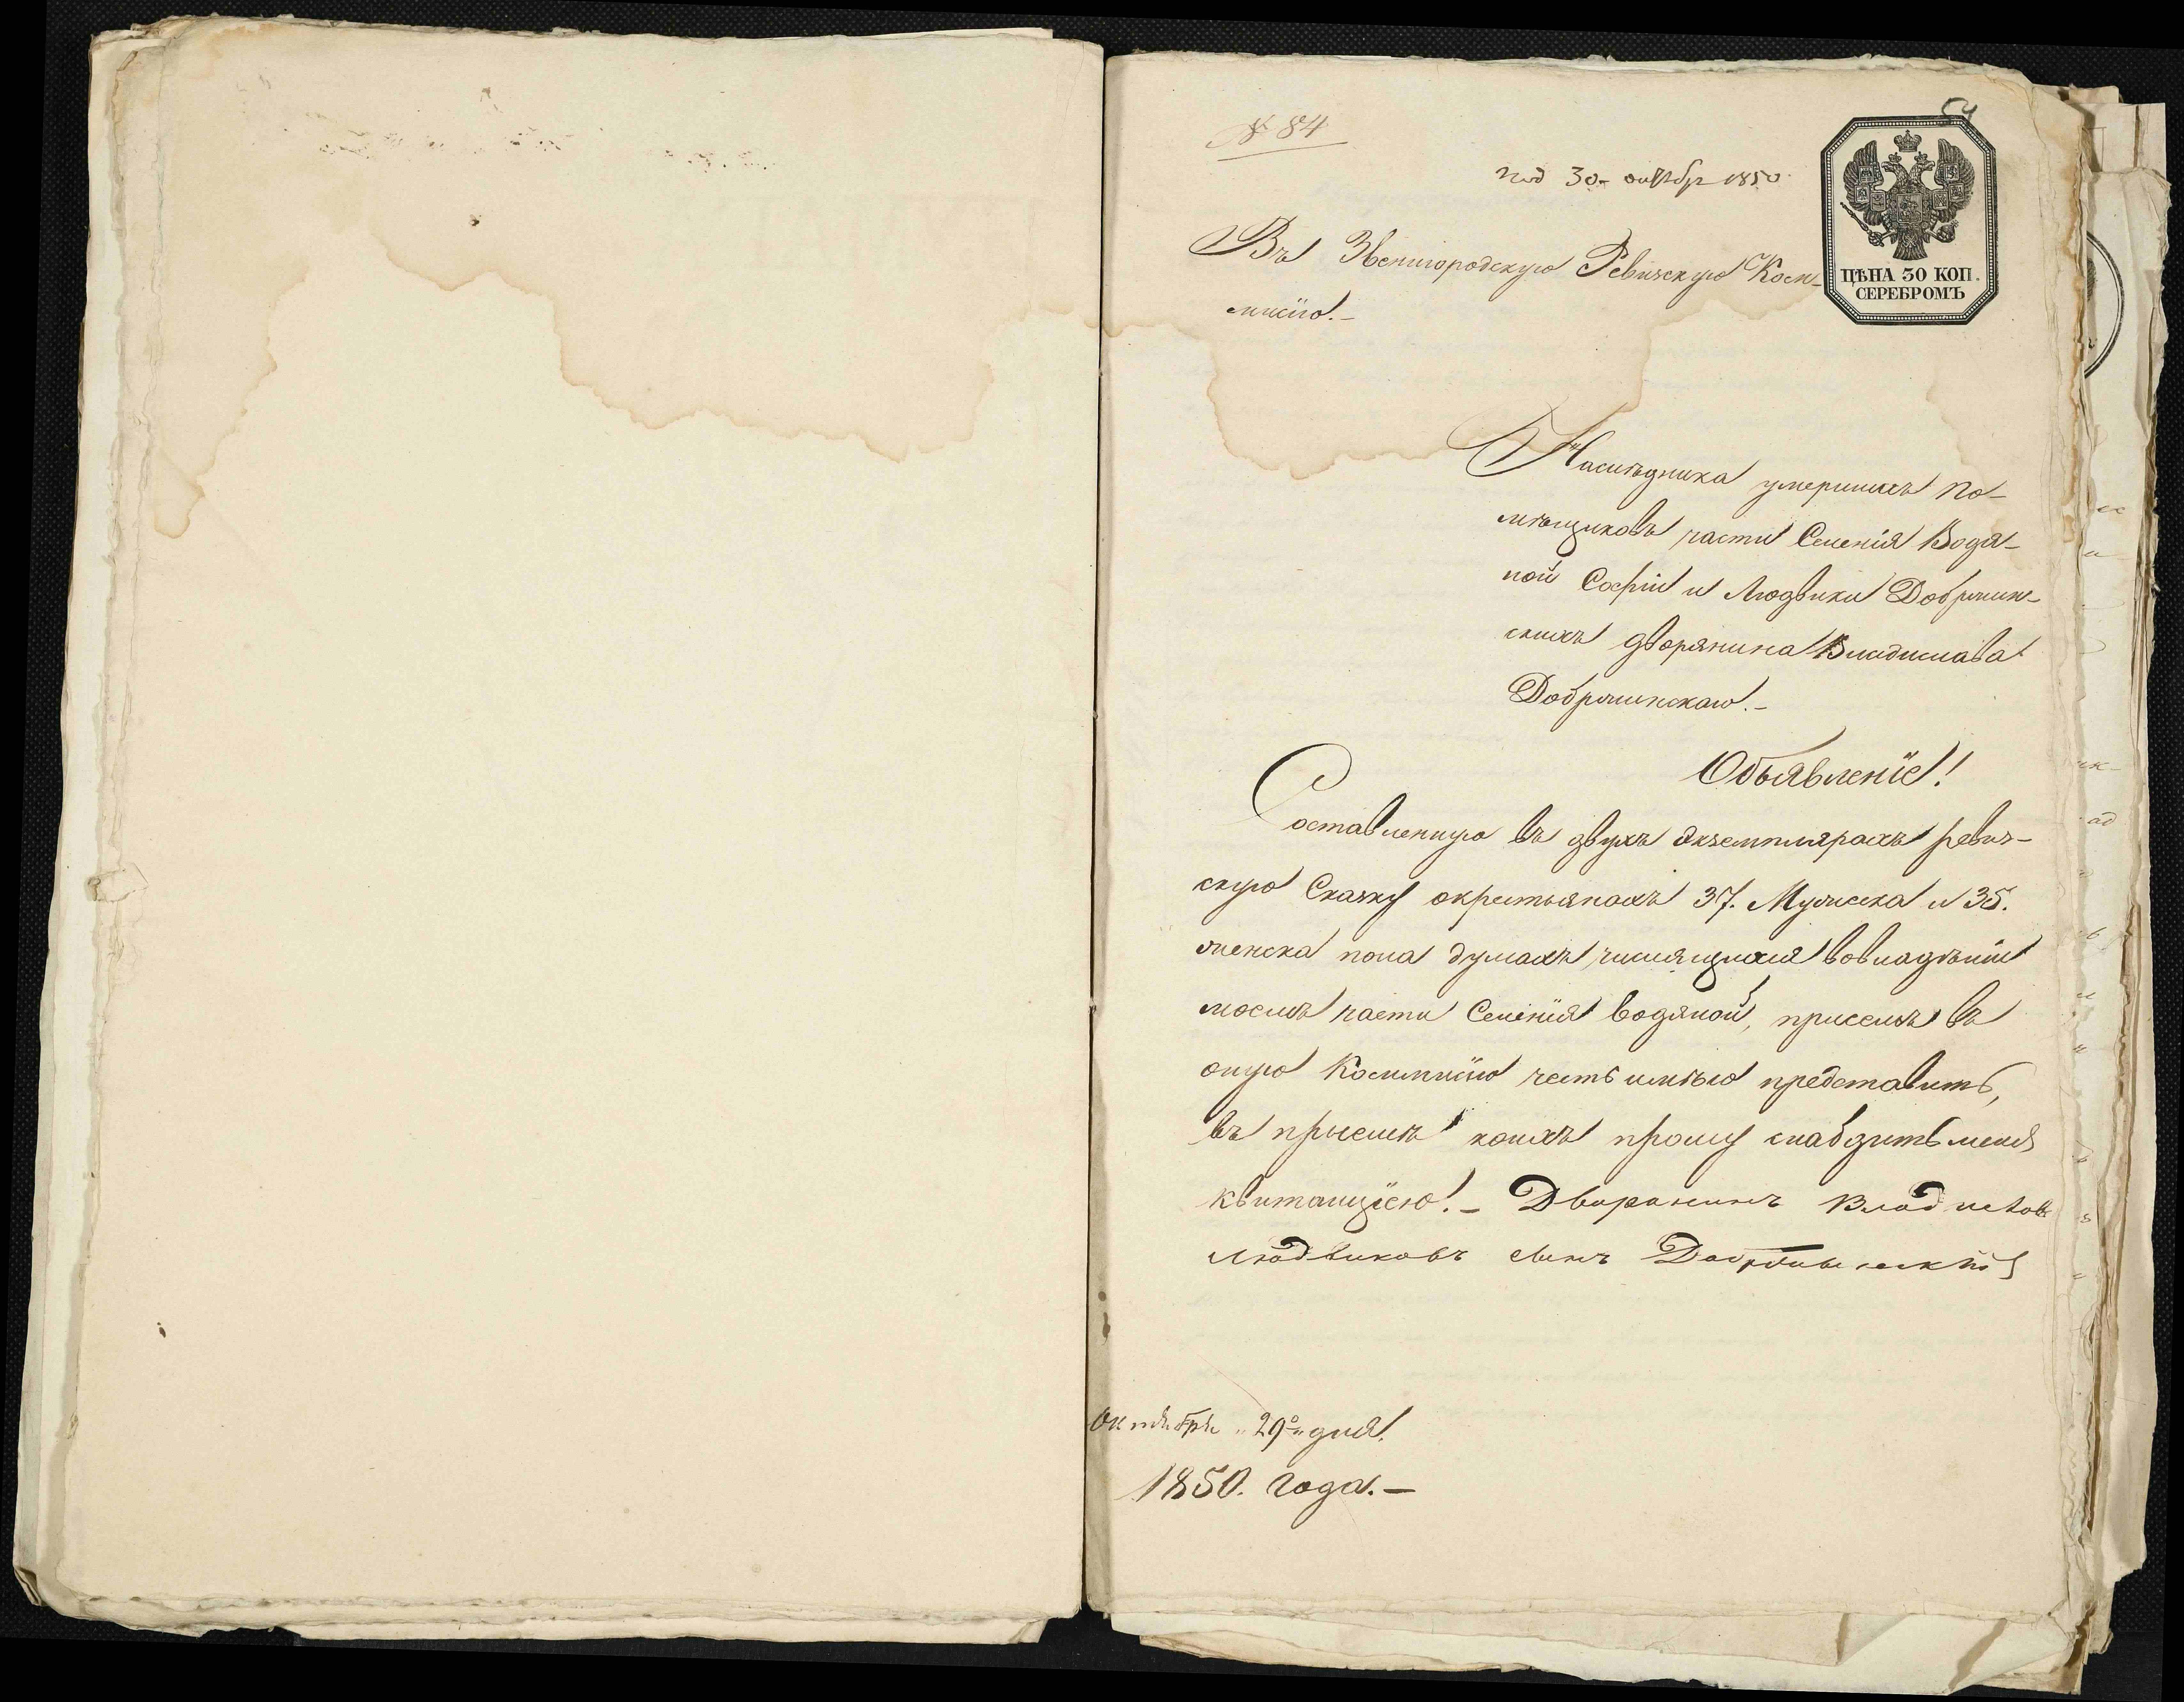 № 84
54
под 30. октябр 1850
ЦѢНА 30 КОП.
СЕРЕБРОМЪ
Въ Звенигородскую Ревизскую Ком-
мисію.-
Наслѣдника умершихъ по-
мѣщиковъ части Селенія Водя-
ной Софіи и Людвики Добржин-
скихъ дворянина Владислава
Добржинскаго.-
Объявленіе!
Составленную въ двухъ экземплярахъ ревиз-
скую Сказку окрестьянахъ 37. Мужеска и 35.
женска пола душахъ числящихся вовладѣніи
моемъ части Селенія водяной, присемъ въ
оную Коммисію честь имѣю представить,
въ пріемѣ коихъ прошу снабдить меня
квитанціею!- Дворанинъ Владиславъ
Людвиковъ сынъ Добржинскій
Октября „29го„ дня.
1850. года.-